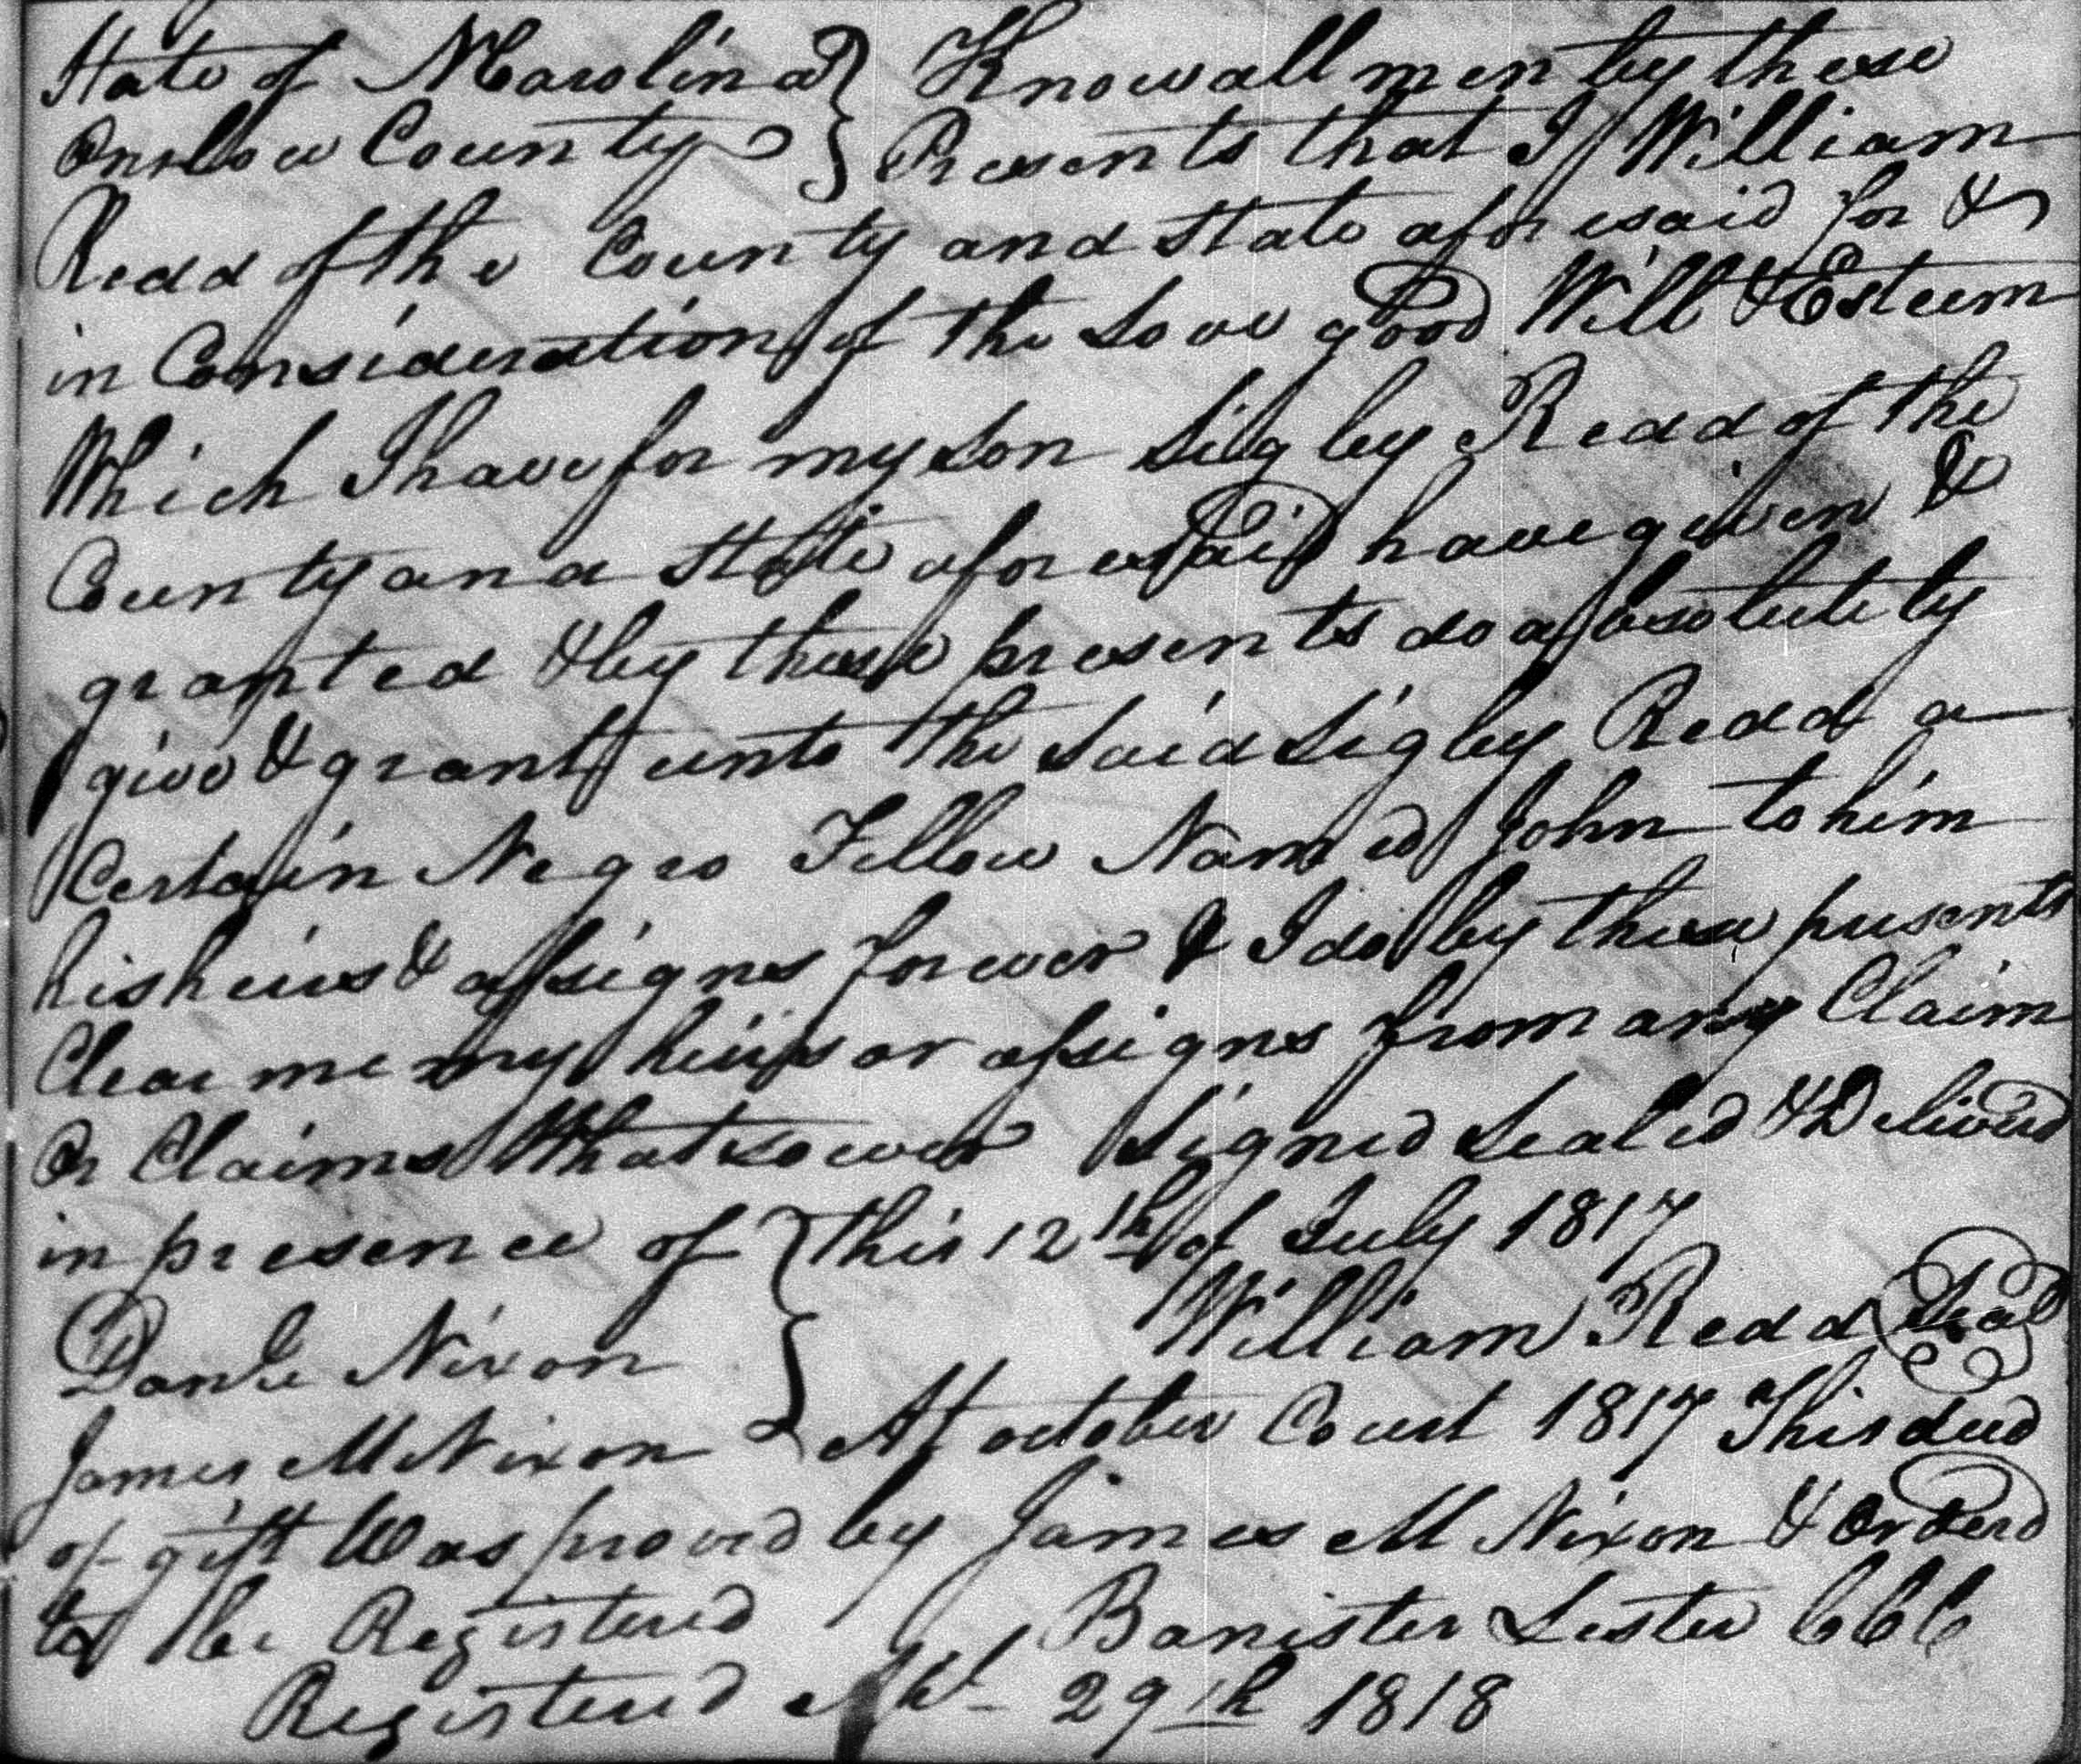 State of NCarolina } Know all men by these
Onslow County } Presents that I William
Redd of the County and State aforesaid for &
in Consideration of the Love good Will & Esteem
Which I have for my son Sigley Redd of the
County and State aforesaid have given &
granted & by these presents do absolutely
give & grant unto the said Sigley Redd a
Certain Negro Fellow Named John to him
his heirs & assigns forever & I do by these presents
Clear me my heirs or assigns from any Claim
Or Claims Whatsoever Signed Sealed & Deliverd
in presence of } this 12th of July 1817
Nixon } William Redd Seal
James M Nixon } At october Court 1817 This deed
of gift Was proved by James M Nixon & orderd
to be Registered Banister Lester CCC
Registered Apl 29th 1818